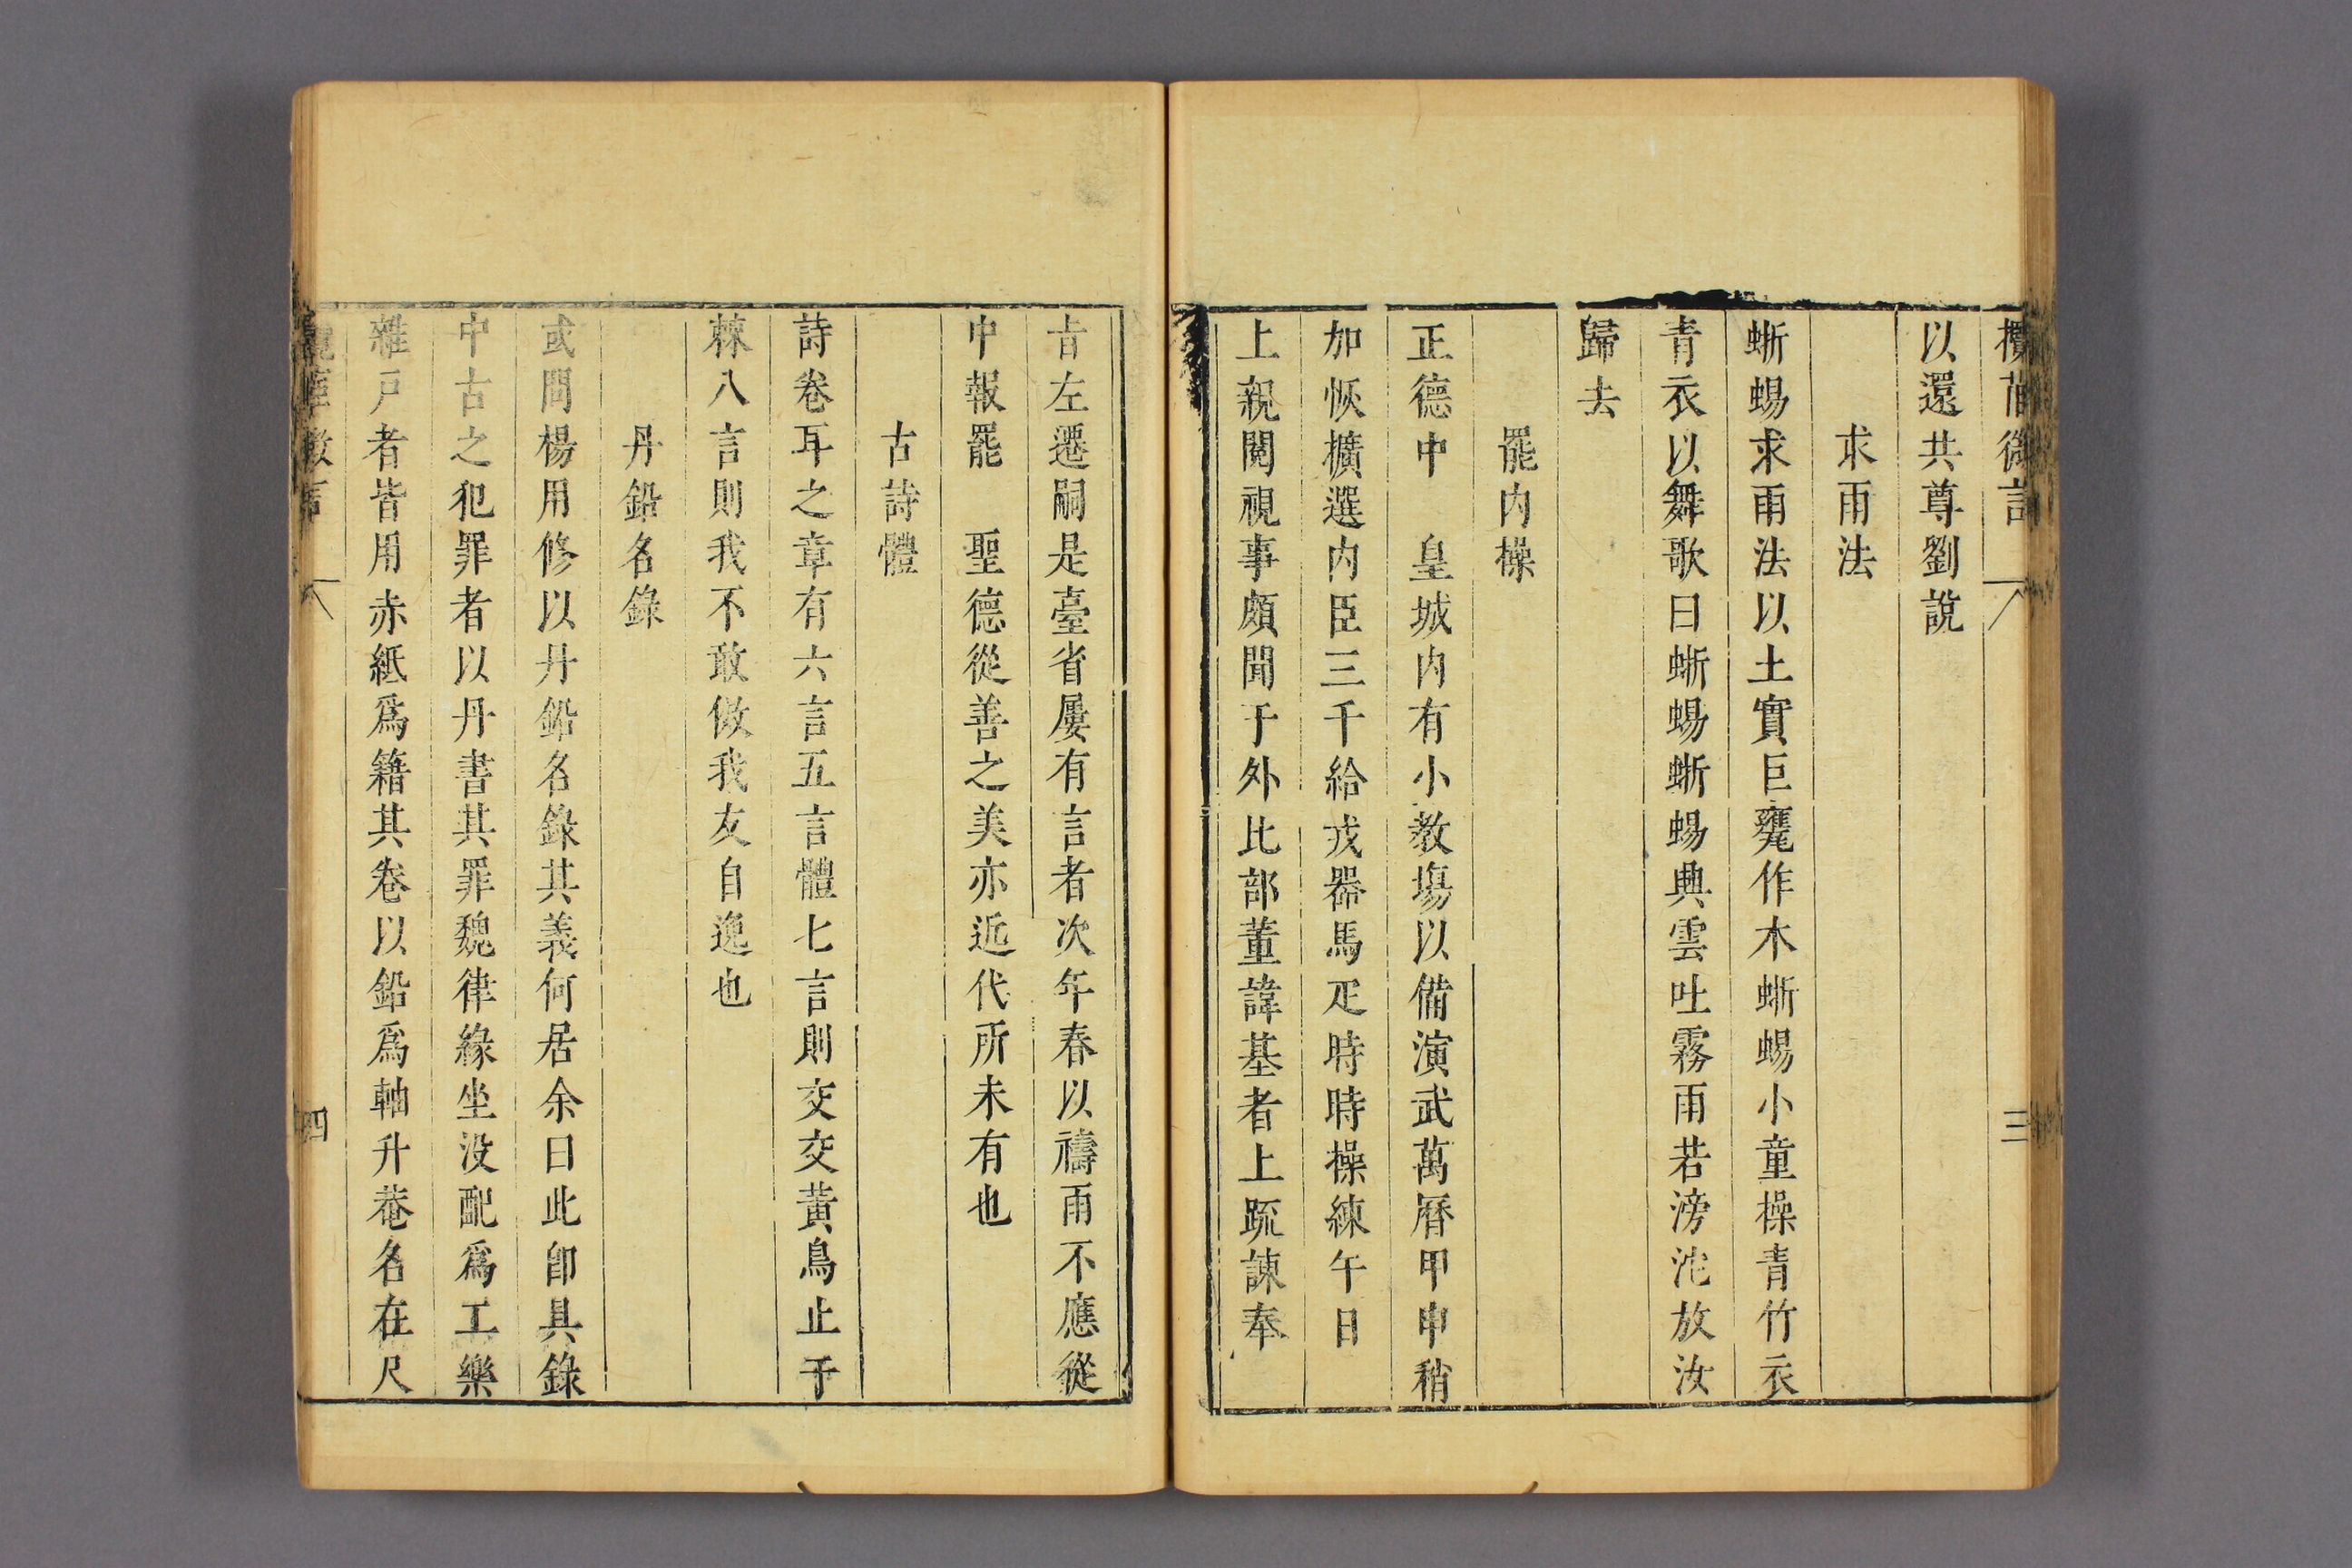 以還共尊劉說
求雨法
蜥蜴求雨法以土實巨甕作木蜥蜴小童操青竹衣
青衣以舞歌曰蜥蜴蜥蜴興雲吐霧雨若滂沱放汝
歸去
罷内操
正德中　皇城内有小教塲以備演武萬曆甲申稍
加恢擴選内臣三千給戎器馬疋時時操練午日
上親閱視事頗聞于外比部董諱基者上䟽諫奉
三
旨左遷嗣是臺省屢有言者次年春以禱雨不應從
中報罷　聖德從善之美亦近代所未有也
古詩體
詩卷耳之章有六言五言體七言則交交黃鳥止于
棘八言則我不敢傚我友自逸也
丹鉛名錄
或問楊用修以丹鉛名錄其義何居余曰此卽具錄
中古之犯罪者以丹書其罪魏律緣坐没配爲工樂
雜戸者皆用赤紙爲籍其卷以鉛爲軸升菴名在尺
四